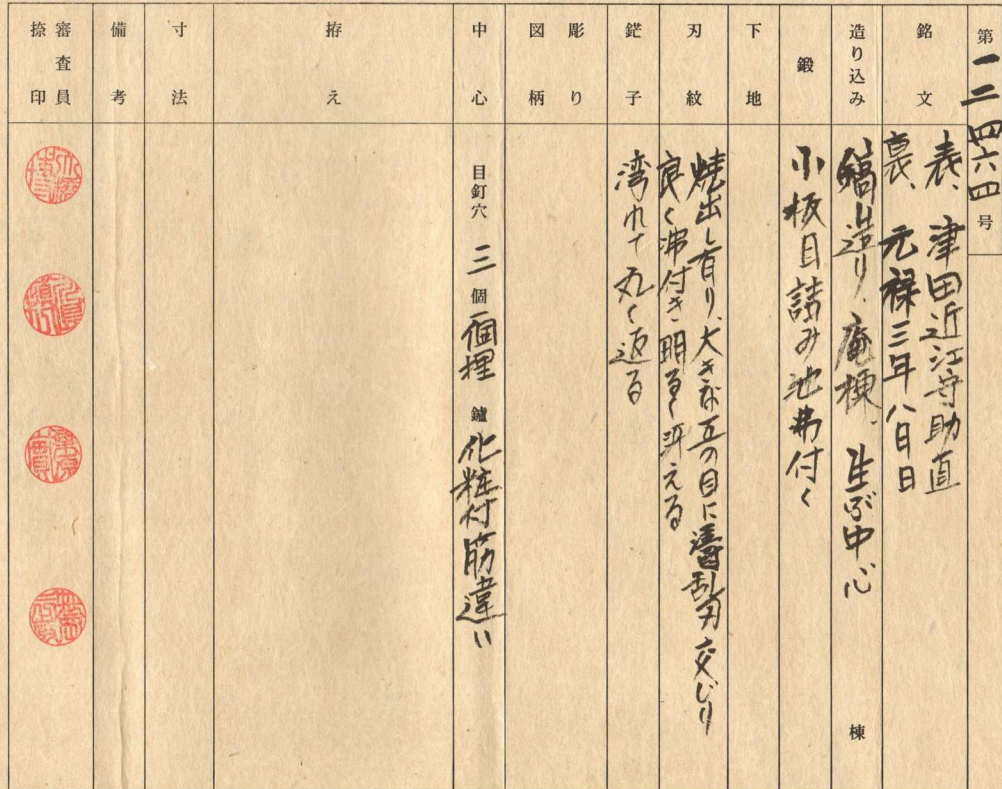 第一二四六四号
銘文
表、津田近江守助直
裏、元禄三年八月日
造り込み
鎬造り、庵棟、生ぶ中心 棟
鍛
小板目詰み地沸付く
下地
刃紋
焼出し有り、大きな互の目に濤乱刃交じり
良く沸付き、明るく冴える
鋩子
湾れて丸く返る
彫り
図柄
中心
目釘穴 三 個 一個埋 鑢 化粧付筋違い
拵え
寸法
備考
審査員
捺印